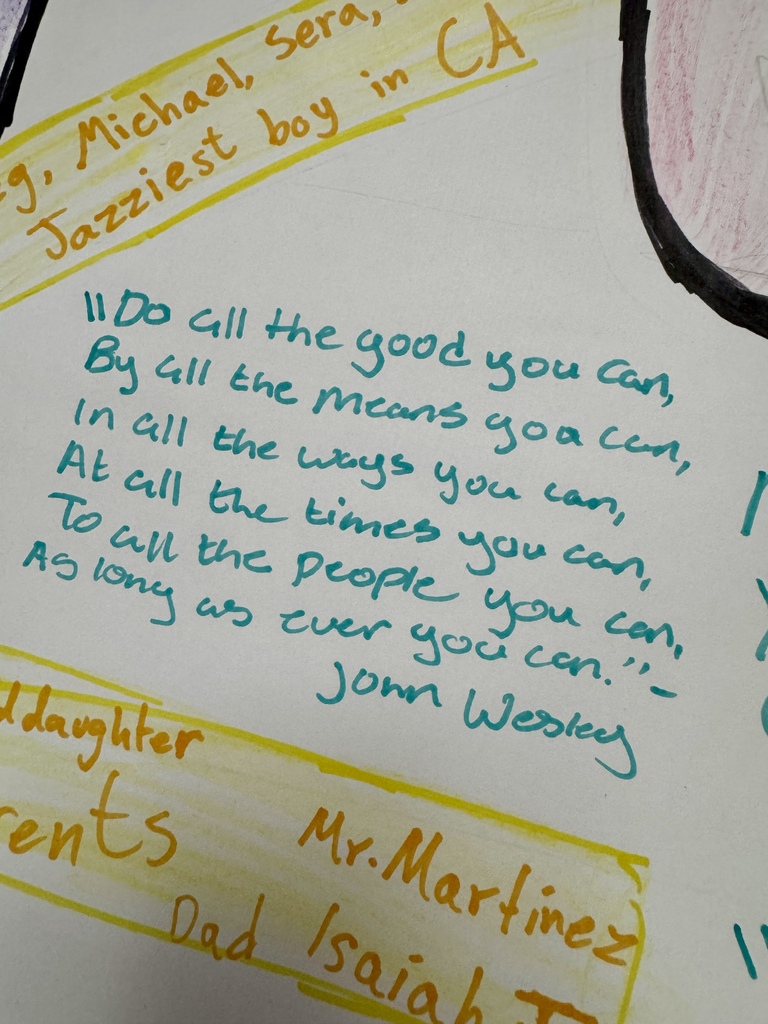 Michael, Sera,
Jazziest boy in CA
"Do all the good you can,
By all the means you can,
In all the ways you can,
At all the times you can,
To all the people you can,
As long as ever you can."-
John Wesley
daughter
Mr. Martinez
Dad Isaiah